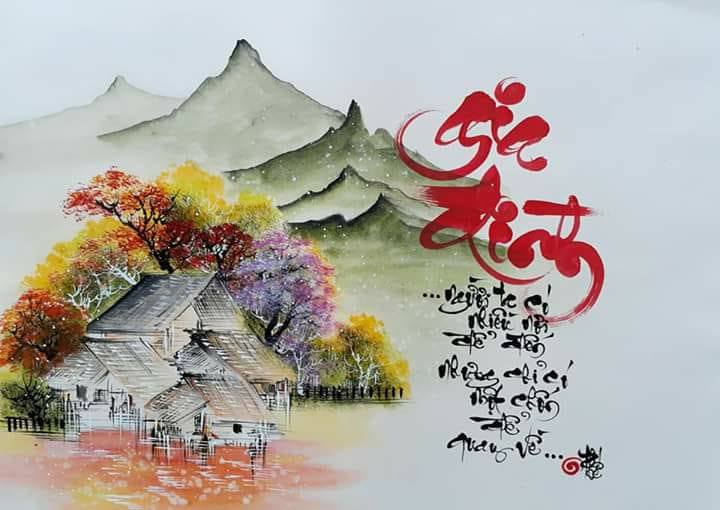 Gia
Đình
...người ta có
nhiều nơi
để đến
nhưng chỉ có
một chốn
để
quay về...